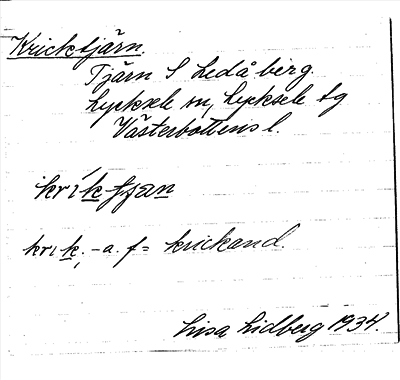 Kricktjärn
Tjärn S Ledåberg.
Lycksele sn, Lycksele tg
Västerbottens l.
krík tjan
krik, -a. f = krickand.
Lisa Lidberg 1934.